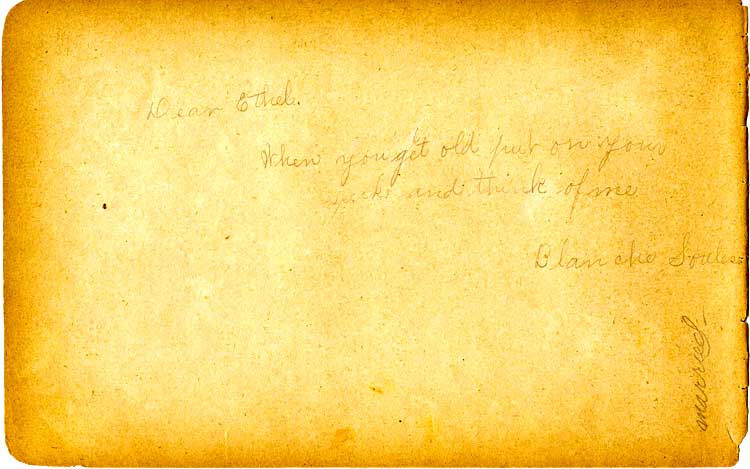 Dear Ethel.
When you get old put on your
and think of me
Blanche
married